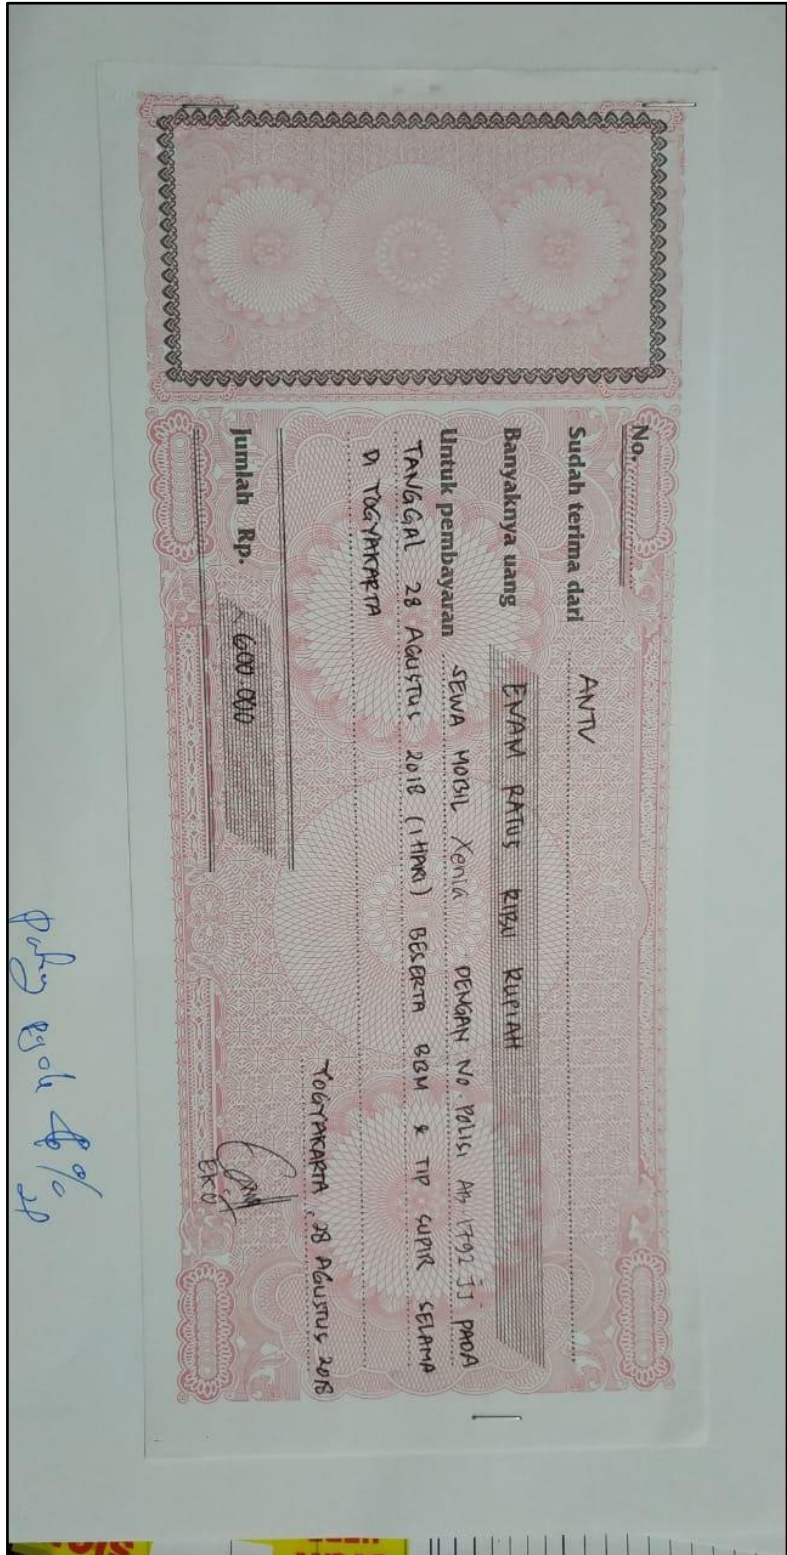 No.
Sudah terima dari ANTV
Banyaknya uang ENAM RATUS RIBU RUPIAH
Untuk pembayaran SEWA MOBIL Xenia DENGAN NO. POLISI AB 1792 JJ PADA
TANGGAL 28 AGUSTUS 2018 (1 HARI) BESERTA BBM & TIP SUPIR SELAMA
DI YOGYAKARTA
YOGYAKARTA, 28 AGUSTUS 2018
Jumlah Rp. 600.000
EKO